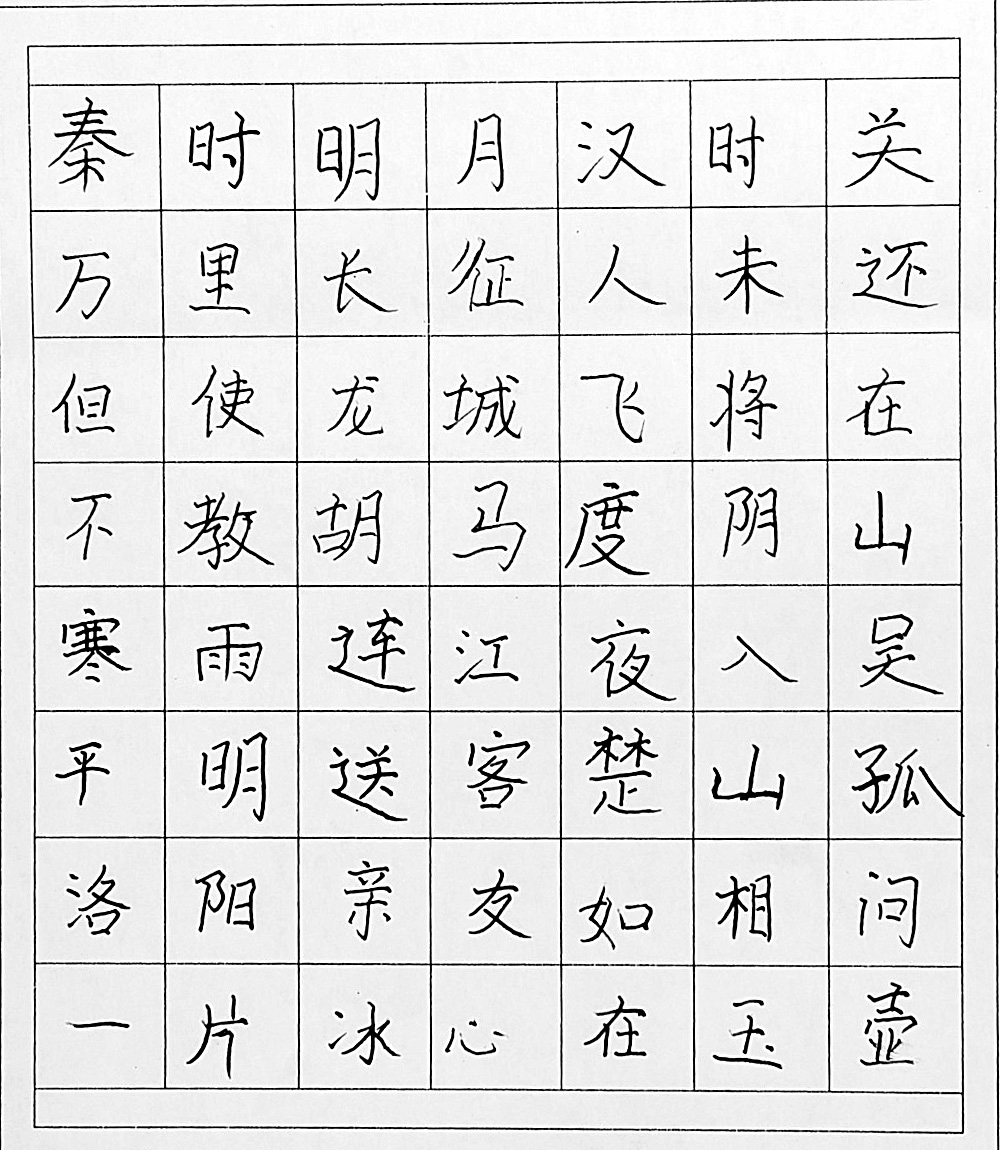 秦时明月汉时关
万里长征人未还
但使龙城飞将在
不教胡马度阴山
寒雨连江夜入吴
平明送客楚山孤
洛阳亲友如相问
一片冰心在玉壶